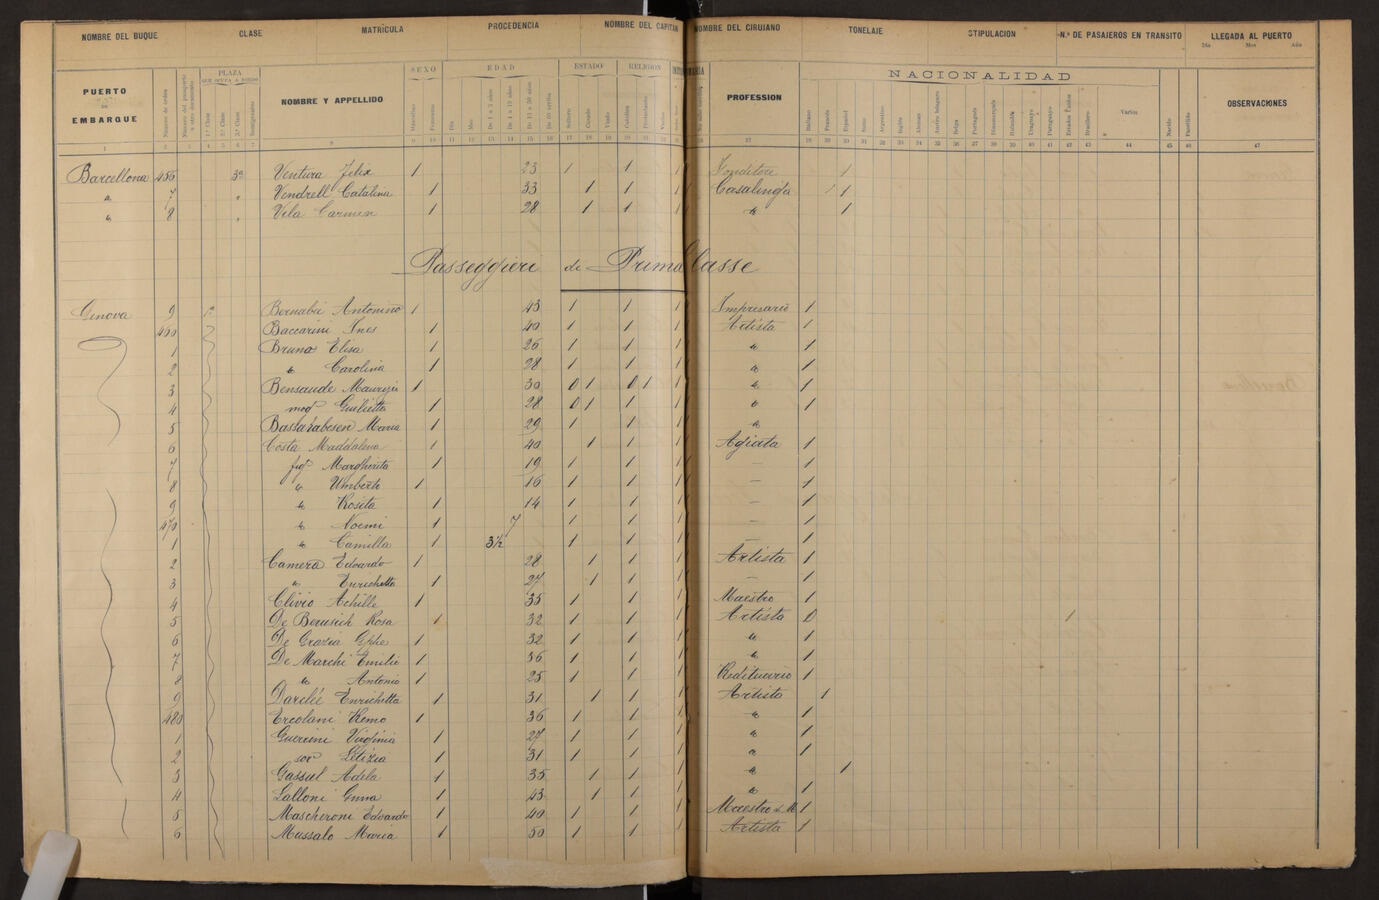 NOMBRE DEL BUQUE CLASE MATRÍCULA PROCEDENCIA NOMBRE DEL CAPITAN NOMBRE DEL CIRUJANO TONELAJE STIPULACION N.º DE PASAJEROS EN TRANSITO LLEGADA AL PUERTO
Dia Mes Año
PUERTO DE EMBARQUE Número de orden PLAZA QUE OCUPA A BORDO 1.ª Clase 2.ª Clase 3.ª Clase NOMBRE Y APPELLIDO SEXO Masculino Femenino EDAD ESTADO Soltero Casado Viudo RELIGION PROFESSION NACIONALIDAD Italiano Francés Español Suizo Argentino Inglés Aleman Belga Portugués Uruguayo Paraguayo Estados Unidos Brasilero Varios Nacido Fallecido OBSERVACIONES
1 2 3 4 5 6 7 8 9 10 11 12 13 14 15 16 17 18 19 20 21 22 28 29 30 31 32 33 34 35 36 37 38 39 40 41 42 43 44 45 46 47
Barcellona 456 3ª Ventura Felix 1 23 1 1 1 Fonditore 1
" 7 " Vendrell Catalina 1 33 1 1 1 Casalinga 1 1
" 8 " Vila Carmen 1 28 1 1 1 " 1
Passeggieri di Prima Classe
Genova 9 1ª Bernabei Antonino 1 43 1 1 1 Impresario 1
460 Baccarini Ines 1 40 1 1 1 Artista 1
1 Bruno Elisa 1 26 1 1 1 " 1
2 " Carolina 1 28 1 1 1 " 1
3 Bensaude 1 30 0 1 0 1 1 " 1
4 mog. Giulietta 1 28 0 1 1 1 " 1
5 Maria 1 29 1 1 1 "
6 Costa Maddalena 1 40 1 1 1 Agiata 1
7 fig. Margherita 1 19 1 1 1 — 1
8 " Umberto 1 16 1 1 1 — 1
9 " Rosita 1 14 1 1 1 — 1
470 " Noemi 1 7 1 1 1 — 1
1 " Camilla 1 3½ 1 1 1 — 1
2 Camera Edoardo 1 28 1 1 1 Artista 1
3 " Enrichetta 1 27 1 1 1 — 1
4 Clivio Achille 1 35 1 1 1 Maestro 1
5 De Rosa 1 32 1 1 1 Artista 0 1
6 De Grazia Gphe 1 32 1 1 1 " 1
7 De Marchi Emilio 1 36 1 1 1 " 1
8 " Antonio 1 25 1 1 1 Redituario 1
9 Darclée Enrichetta 1 31 1 1 1 Artista 1
480 Ercolani Remo 1 36 1 1 1 " 1
1 Guerrini Virginia 1 27 1 1 1 " 1
2 sor. Letizia 1 31 1 1 1 " 1
3 Gassul Adela 1 35 1 1 1 " 1
4 Lalloni Anna 1 43 1 1 1 " 1
5 Mascheroni Edoardo 1 40 1 1 1 Maestro d. M. 1
6 Mussalo Maria 1 50 1 1 1 Artista 1